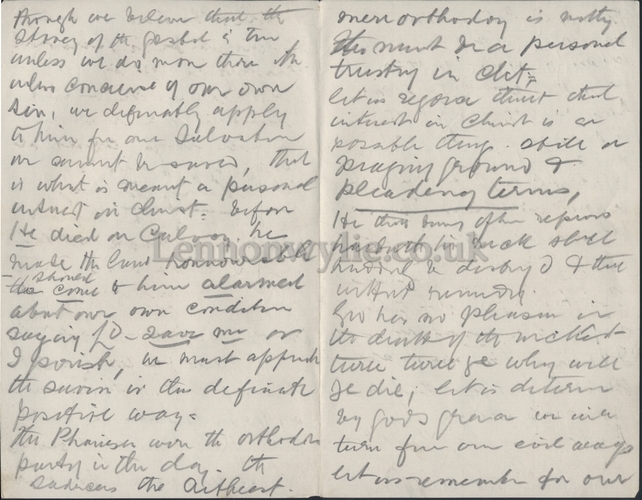 through we believe that the
story of the gospel is true
unless we do more than th
unless conscience of our own
sin, we definatly apply
to him for our Salvation
we cannot be saved, that
is what is meant a personal
intrest in christ = before
He died on Calvary he
made the
should come to him alarmed
about our own condition
saying LD - save me or
I perish, we must approach
the savior in this definate
positive way =
The Pharisees were the orthodox
party in the day. th
Saducees the
mere orthodoxy is nothg
this must be a personal
trusting in Cht =
let us rejoice that that
interest in Christ is a
possable thing. still on
praying ground &
pleading terms,
He that being often reproved
hardeneth his neck shall
suddenly be destroy'd & that
without remedy.
God has no pleasure in
the death of the wicked
turn turn ye why will
ye die, let us determ
by gods grace we will
turn from our evil ways
let us remember for our
Lennonwylie.co.uk